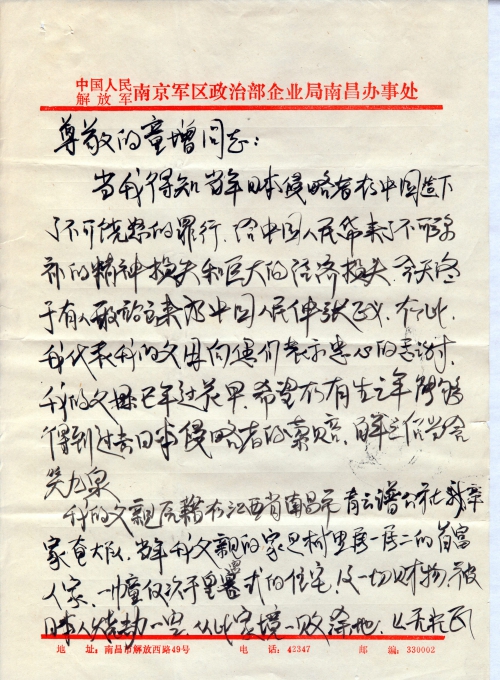 中国人民
解放军
南京军区政治部企业局南昌办事处
尊敬的童增同志:
当我得知当年日本侵略者在中国造下
了不可饶恕的罪行,给中国人民带来了不可弥
补的精神损失和巨大的经济损失,今天终
于有人敢站出来为中国人民伸张正义,在此,
我代表我的父母向您们表示衷心的感谢,
我的父母已年过花甲,希望在有生之年能够
得到过去日本侵略者的索赔,
笑九泉
我的父亲原籍在江西省南昌市青云谱
家大队,当年我父亲的家是村里居一居二的首富
人家,一幢
式的住宅,这一切财物,被
日本人烧劫一空,从此家境一败涂地,
地 址:南昌市解放西路49号 电 话:42347 邮 编:330002